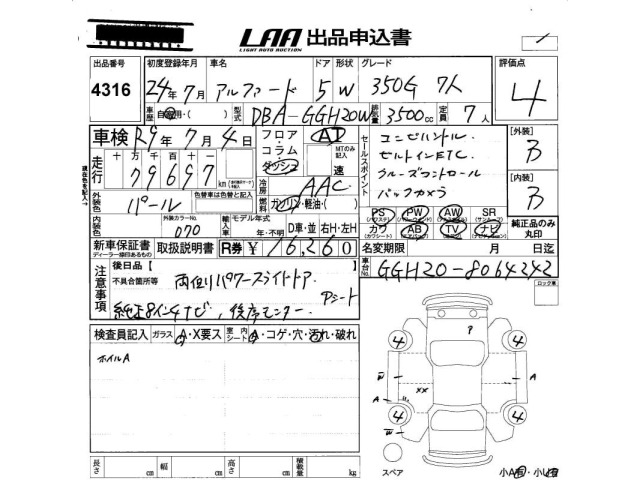 LAA 出品申込書
LIGHT AUTO AUCTION
出品番号 初度登録年月 車名 ドア 形状 グレード 評価点
4316 24年7月 アルファード 5 W 350G 7人 4
車歴 自家用・( ) 型式 DBA-GGH20W 排気量 3500cc 定員 7人
車検 R9年7月4日 フロア・コラム・ダッシュ AT MTのみ記入 速
セールスポイント
コンビハンドル
ビルトインETC
クルーズコントロール
バックカメラ
[外装] B
[内装] B
現在色を記入→
走行 十万千百十一
79697 km
冷房 AAC
外装色 パール 色替車は色替と記入
燃料 ガソリン・軽油・( )
内装色 外装カラーNo. 070 輸入車 モデル年式 D車・並 右H・左H
PS PW AW SR
カワ AB TV ナビ
純正品のみ丸印
新車保証書 取扱説明書 R券 ¥16,260
ディーラー捺印あるもの
名変期限 月 日迄
車台No. GGH20-8064242
ロック車
注意事項
後日品【 】
不具合箇所等 両側パワースライドドア
Pシート
純正8インチナビ、後席モニター
検査員記入 ガラス A・X要ス 室内シート A・コゲ・穴・汚れ・破れ
ホイルA
4 4
W A
XX
A
4 4
W
長さ cm 幅 cm 高さ cm 積載量 kg
スペア